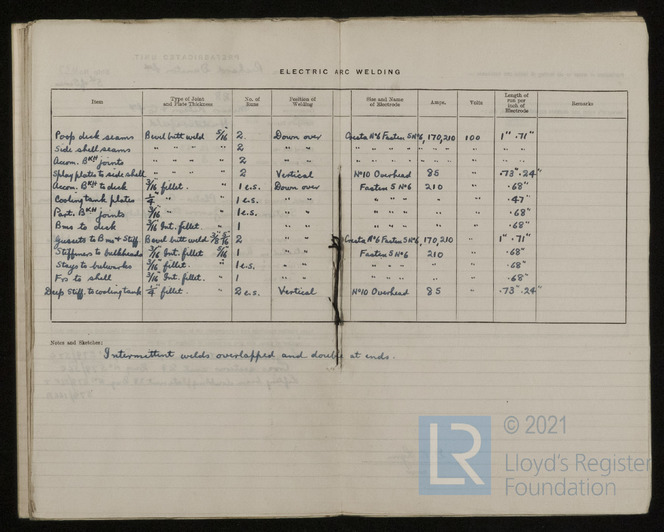 ELECTRIC ARC WELDING
Item Type of Joint and Plate Thickness No. of Runs Position of Welding Size and Name of Electrode Amps. Volts Length of run per inch of Electrode Remarks
Poop deck seams Bevel butt weld 5/16 2 Down over Cresta No 6 Fasten 5 No 6, 170,210 100 1" .71"
Side shell seams " " " " 2 " " " " " " " " " "
Accom. BKH joints " " " " 2 " " " " " " " " " "
Splay plates to side shell " " " " 2 Vertical No 10 Overhead 85 " .73" .24"
Accom. BKH to deck 3/16 fillet. " 1 e.s. Down over Fasten 5 No 6 210 " .68"
Cooling tank plates 1/4 " " 1 e.s. " " " " " " .47"
Part. BKH joints 3/16 " " 1 e.s. " " " " " " .68"
Bms to deck 3/16 Int. fillet. " 1 " " " " " " .68"
Gussets to Bms + Stiff Bevel butt weld 3/8 5/16 2 " " Cresta No 6 Fasten 5 No 6, 170,210 " 1" .71"
Stiffeners to bulkheads 3/16 Int. fillet 5/16 1 " " Fasten 5 No 6 210 " .68"
Stays to bulwarks 3/16 fillet. " 1 e.s. " " " " " " .68"
Frs to shell 3/16 Int. fillet. " 1 " " " " " " .68"
Deep Stiff. to cooling tank 1/4 fillet. " 2 e.s. Vertical No 10 Overhead 85 " .73" .24"
Notes and Sketches:
Intermittent welds overlapped and double at ends.
© 2021
LR
Lloyd's Register
Foundation